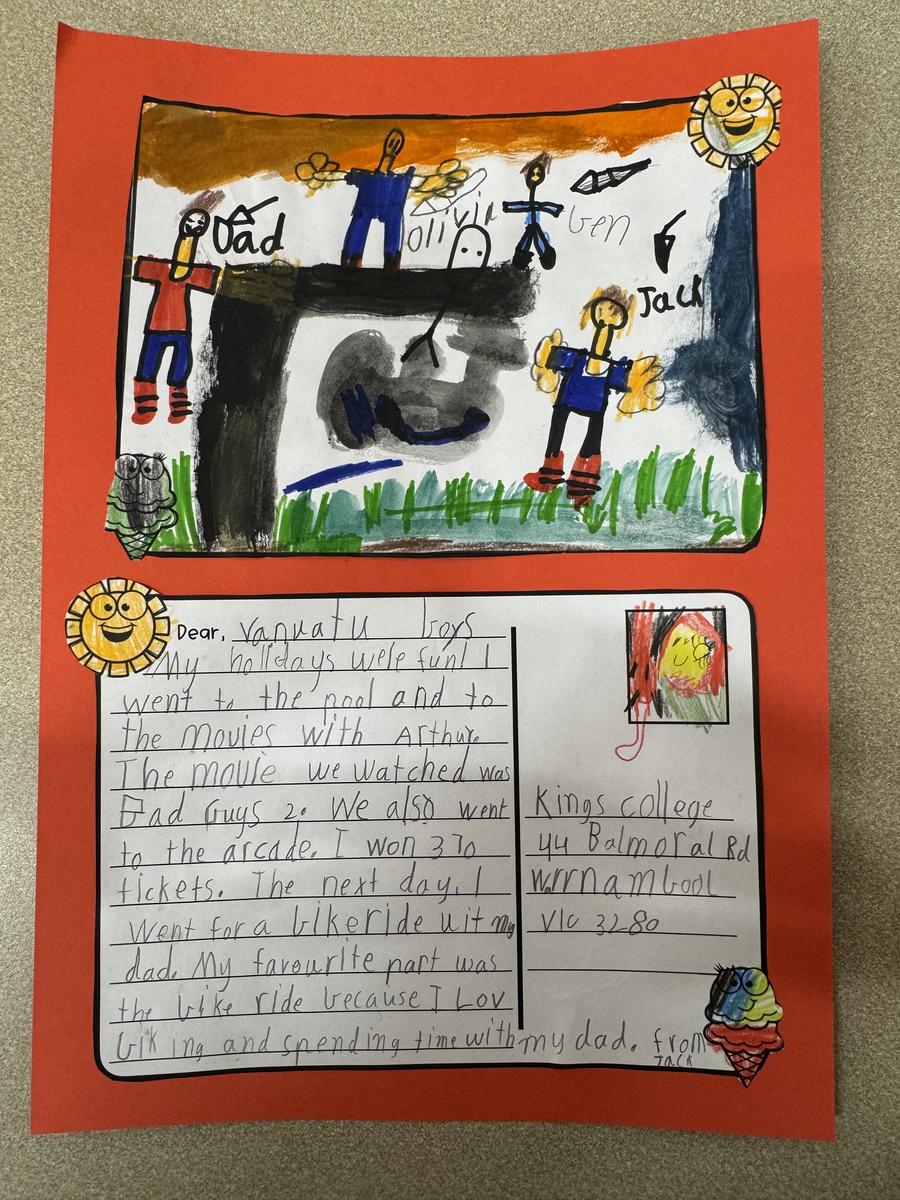 Dad
Olivia
Gen
Jack
Dear, vanuatu boys
My holidays wele fun! I
went to the pool and to
the movies with Arthur.
The movie we watched was
Bad Guys 2. We also went
to the arcade. I won 370
tickets. The next day, I
went for a bikeride uit my
dad. My favourite part was
the bike ride because I Lov
biking and spending time with my dad. from
Jack
Kings college
44 Balmoral Rd
Wrrnambool
Vic 3280